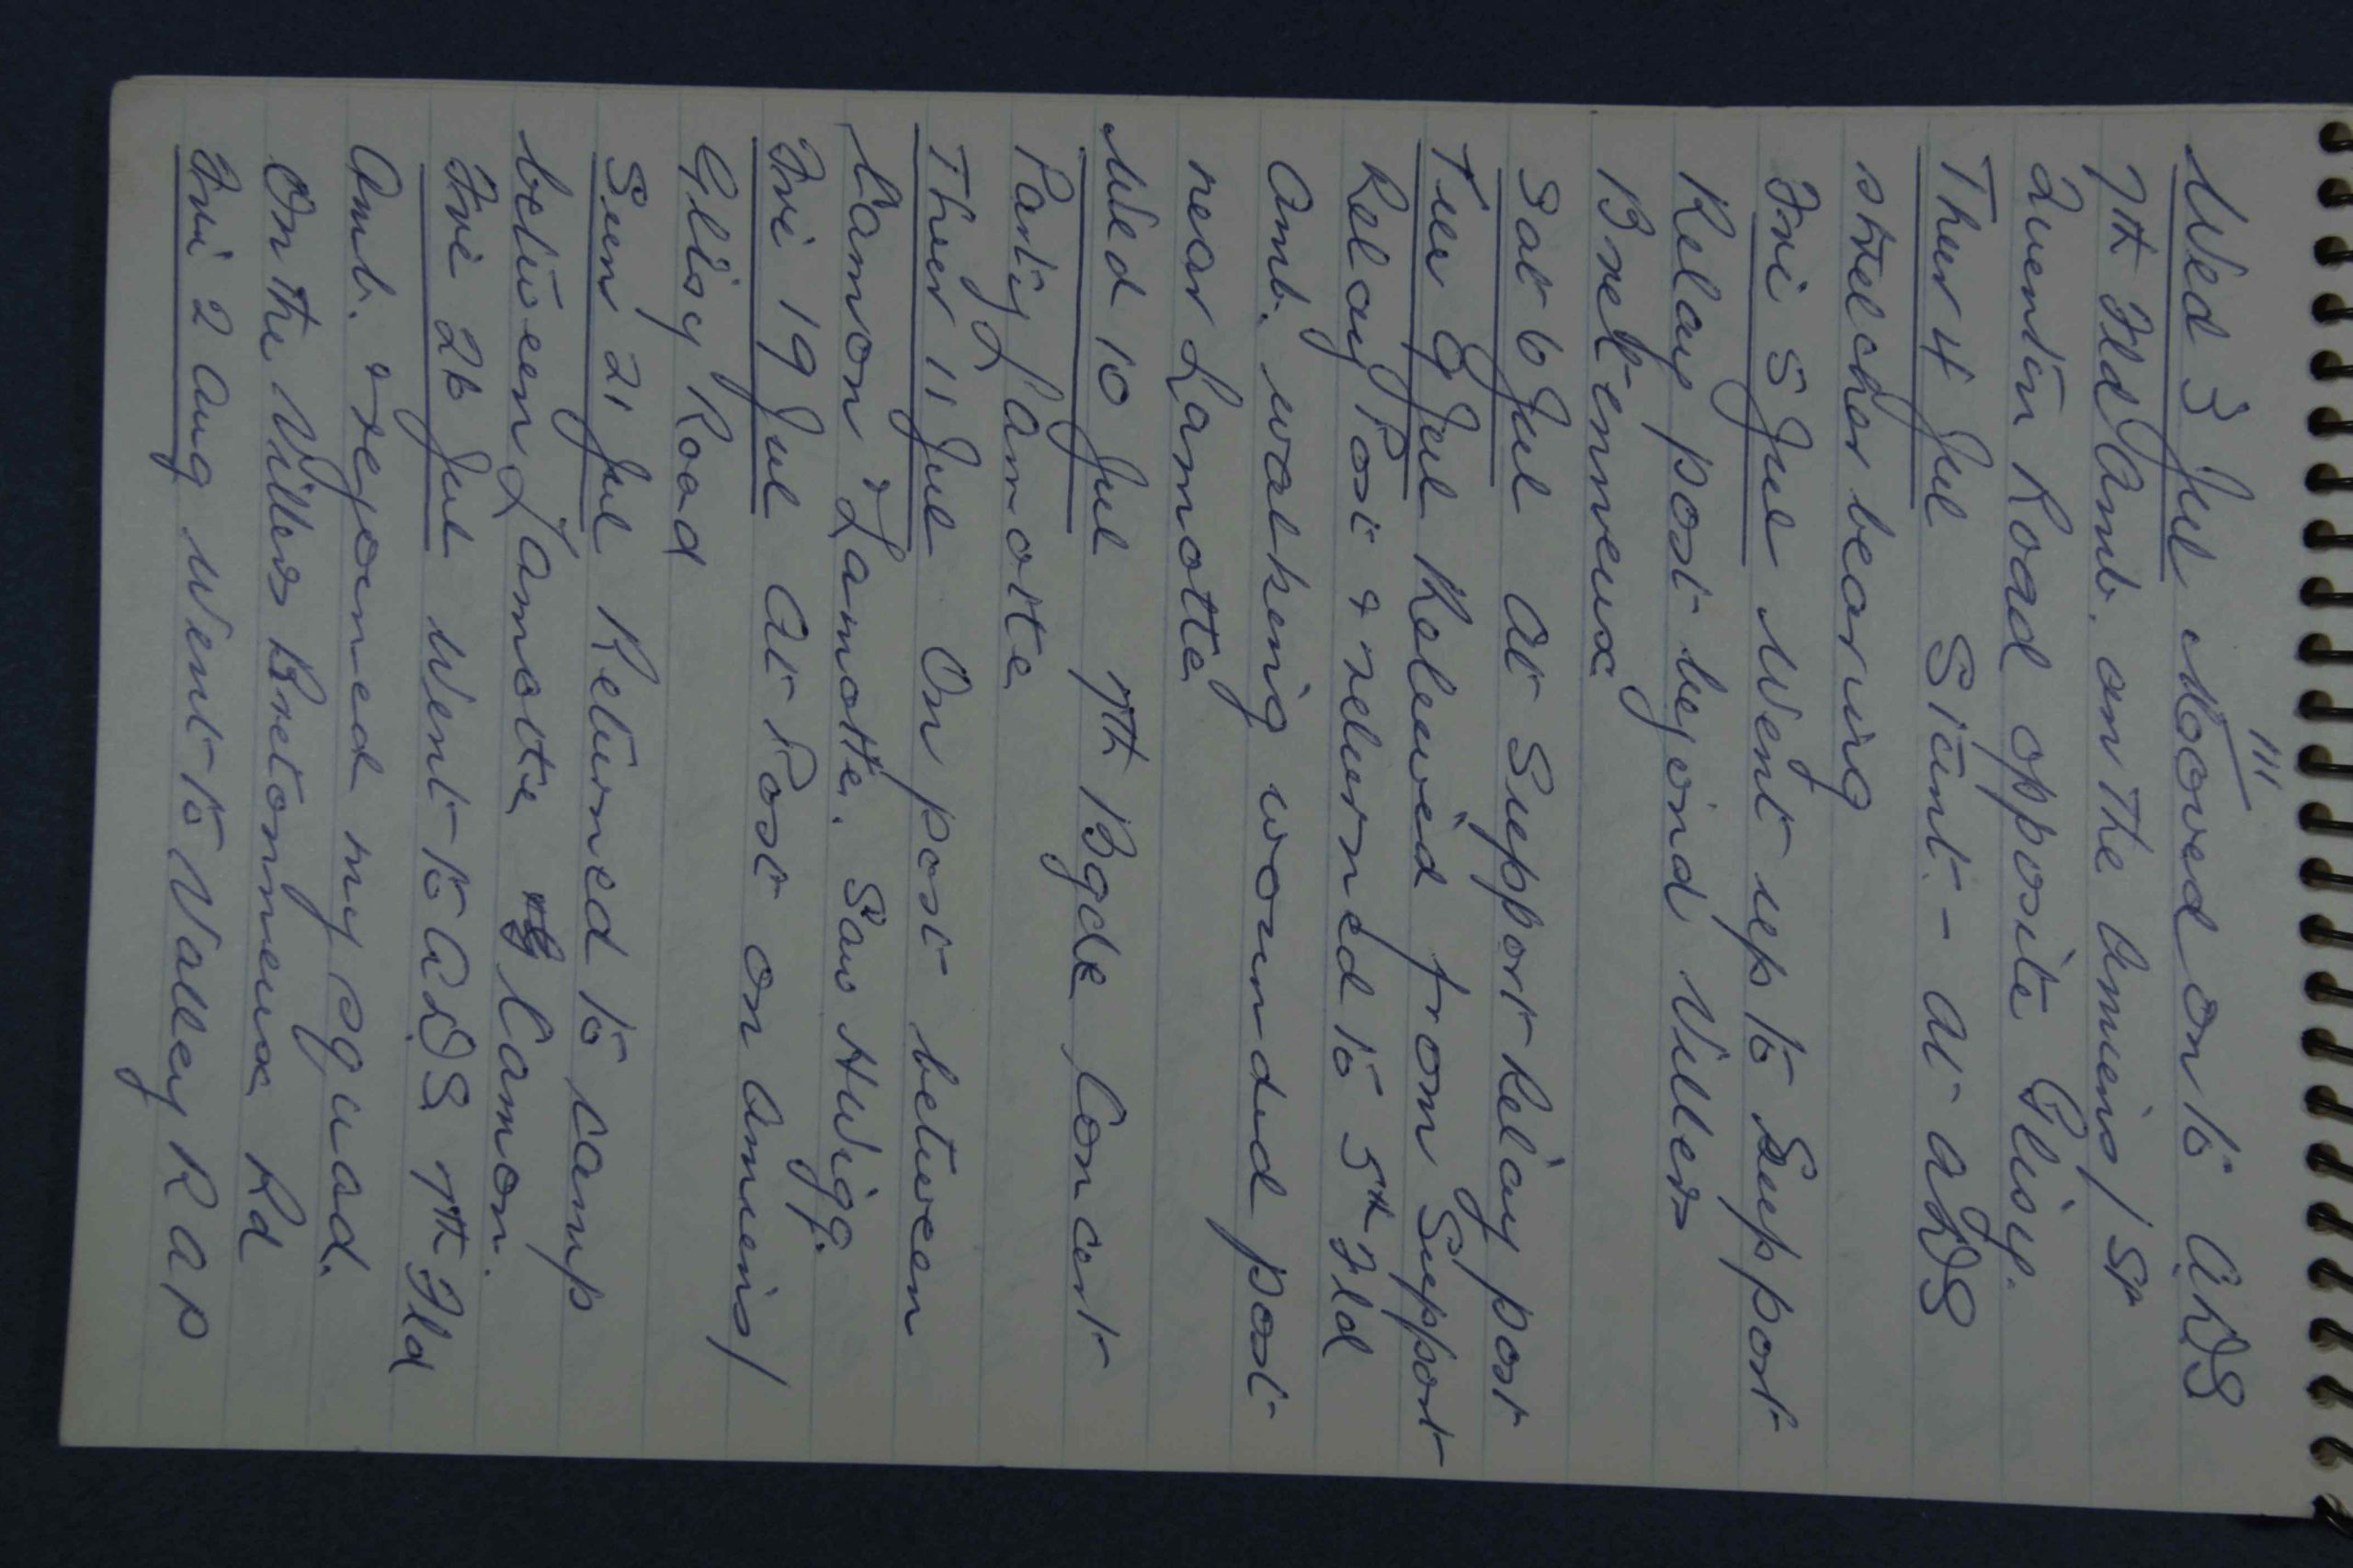 111
Wed 3 Jul Moved on to ADS
7th Fld Amb. on the Amiens / St
Quentin Road opposite Glisy.
Thur 4 Jul Stunt - at ADS
stretcher bearing
Fri 5 Jul Went up to Support
Relay post beyond Villers
Bretenneux
Sat 6 Jul at Support Relay post
Tue 9 Jul Relieved from Support
Relay Post & returned to 5th Fld
Amb. walking wounded post
near Lamotte
Wed 10 Jul 7th Bgde Concert
Party Lamotte
Thur 11 Jul On post between
Camon & Lamotte. Saw H Wigg.
Fri 19 Jul At Post on Amiens /
Glisy Road
Sun 21 Jul Returned to camp
between Lamotte & Camon.
Fri 26 Jul Went to ADS 7th Fld
Amb. & rejoined my squad.
On the Villers Bretonneux Rd
Fri 2 Aug Went to Valley R a p